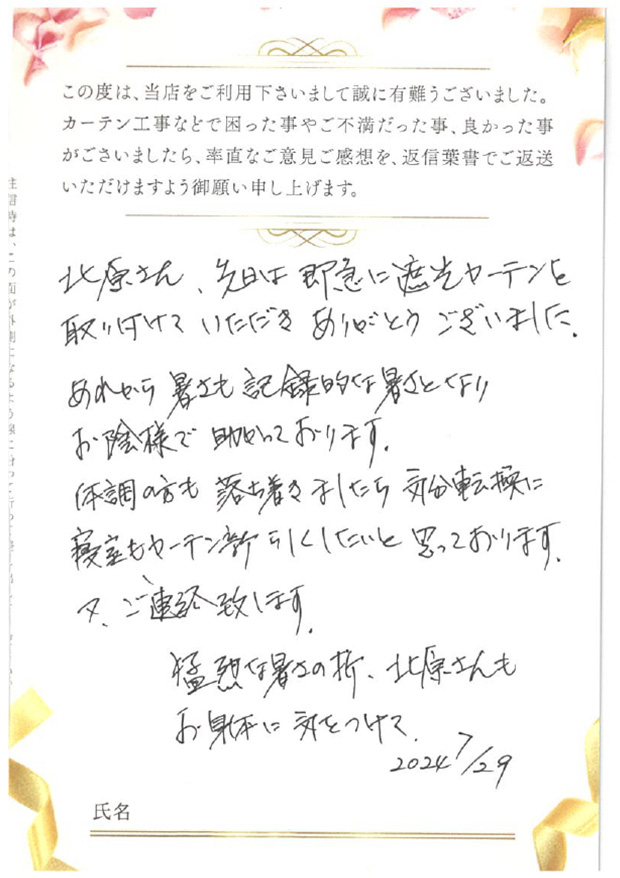 この度は、当店をご利用下さいまして誠に有難うございました。
カーテン工事などで困った事やご不満だった事、良かった事
がございましたら、率直なご意見ご感想を、返信葉書でご返送
いただけますよう御願い申し上げます。
北原さん、先日は即急に遮光カーテンを
取り付けて いただき ありがとう ございました.
あれから 暑さも 記録的な暑さとなり
お陰様で 助かっております.
体調の方も 落ち着きましたら 気分転換に
寝室もカーテン新しくしたいと 思っております.
又、ご連絡致します.
猛烈な暑さの折、北原さんも
お身体に 気をつけて.
2024 7/29
氏名